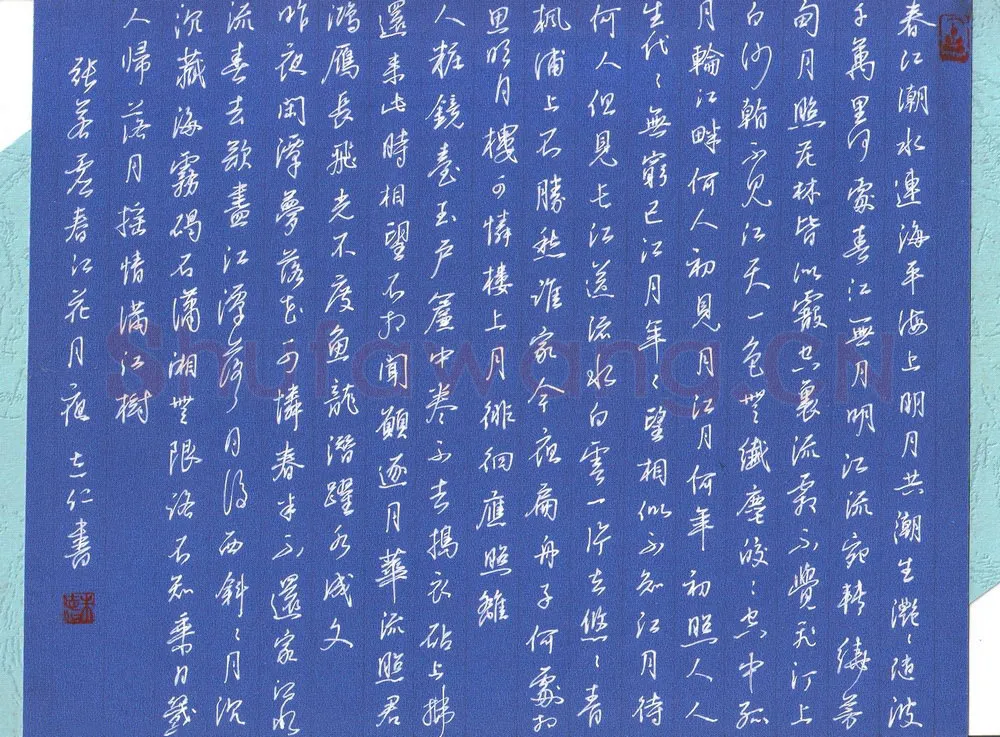 春江潮水連海平海上明月共潮生灩〻随波
千萬里何處春江無月明江流宛轉繞芳
甸月照花林皆似霰空裏流霜不覺飛汀上
白沙看不見江天一色無纖塵皎〻空中孤
月輪江畔何人初見月江月何年初照人人
生代〻無窮已江月年〻望相似不知江月待
何人但見長江送流水白雲一片去悠〻青
楓浦上不勝愁誰家今夜扁舟子何處相
思明月樓可憐樓上月徘徊應照離
人粧鏡臺玉户簾中卷不去搗衣砧上拂
還来此時相望不相聞願逐月華流照君
鴻雁長飛光不度魚龍潛躍水成文
昨夜閑潭夢落花可憐春半不還家江水
流春去欲盡江潭落月復西斜〻月沉
沉藏海霧碣石瀟湘無限路不知乘月幾
人歸落月摇情滿江樹
張若虛春江花月夜 志仁書
Shufawang.CN